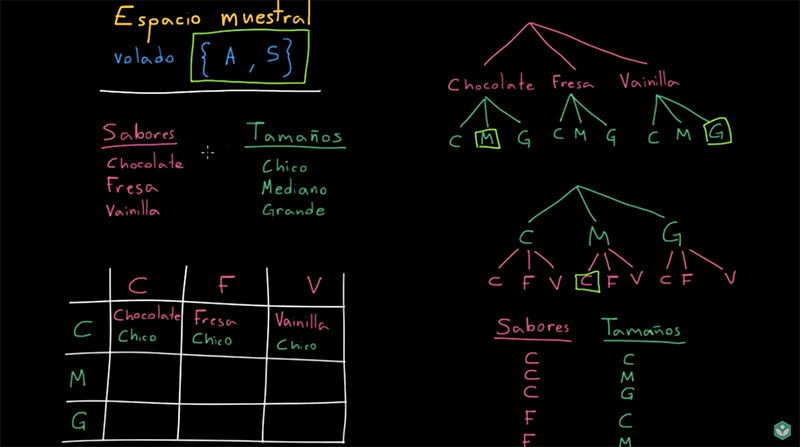 Espacio muestral
volado { A , S }
Sabores Tamaños
Chocolate Chico
Fresa Mediano
Vainilla Grande
C F V
C Chocolate Chico Fresa Chico Vainilla Chico
M
G
Chocolate Fresa Vainilla
C M G C M G C M G
C M G
C F V C F V C F V
Sabores Tamaños
C C
C M
C G
F C
F M